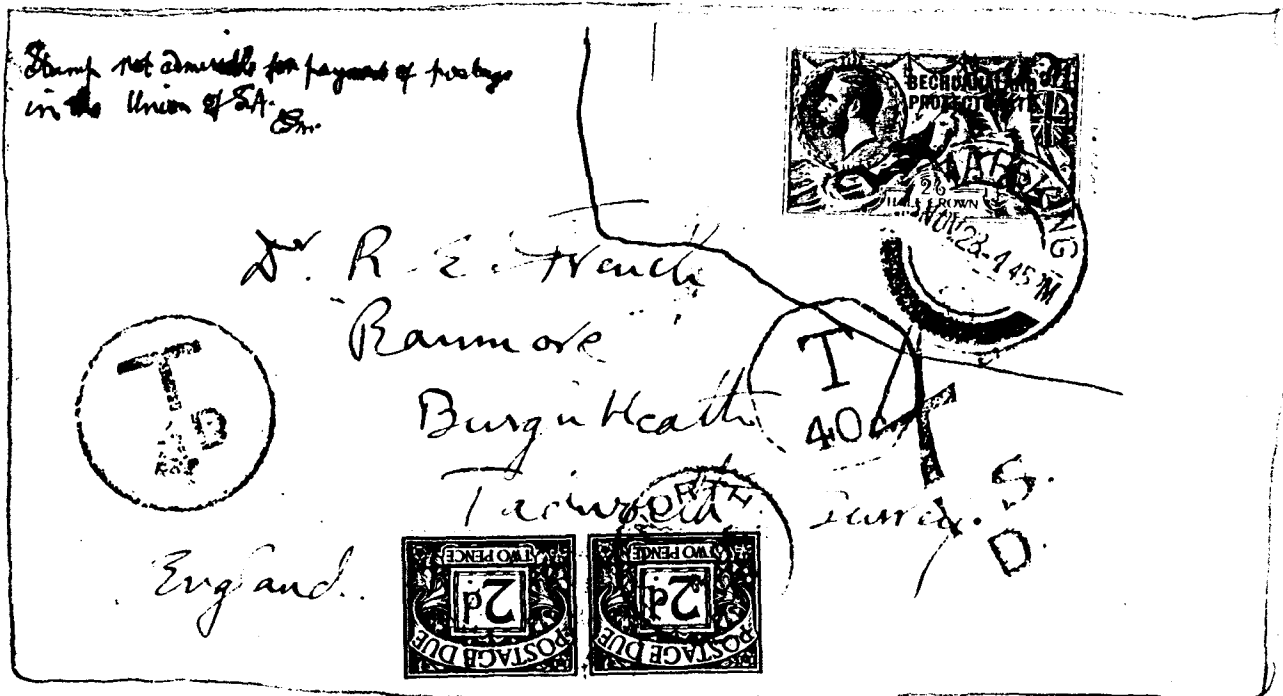 Stamp not admissible for payment of postage
in the Union of S.A.
BECHUANALAND
PROTECTORATE
HALF CROWN
MAFEKING
26 NOV. 23 - 1 45 PM
Dr. R. E. French
"Ranmore"
Burgh Heath
Tadworth Surrey.
England.
T
T
40c
T
S.
D.
TWO PENCE
2d
POSTAGE DUE
TWO PENCE
2d
POSTAGE DUE